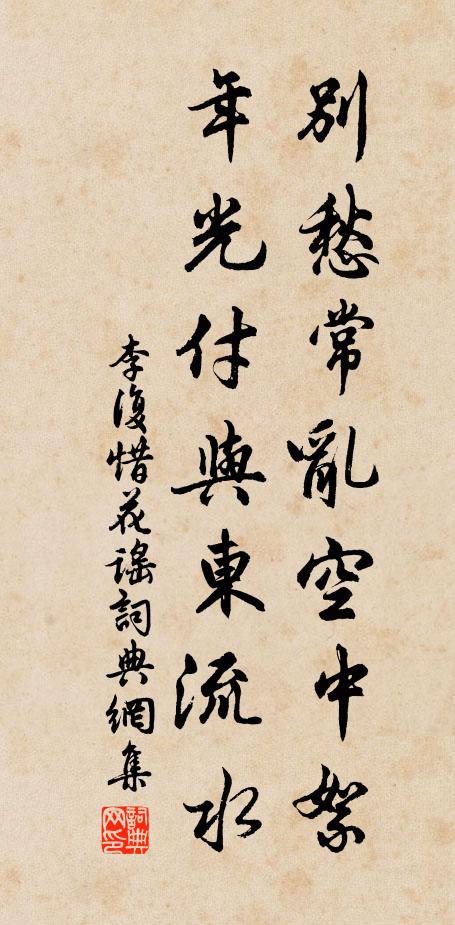 別愁常亂空中絮
年光付與東流水
李復惜花謠詞典網集
詞典網印